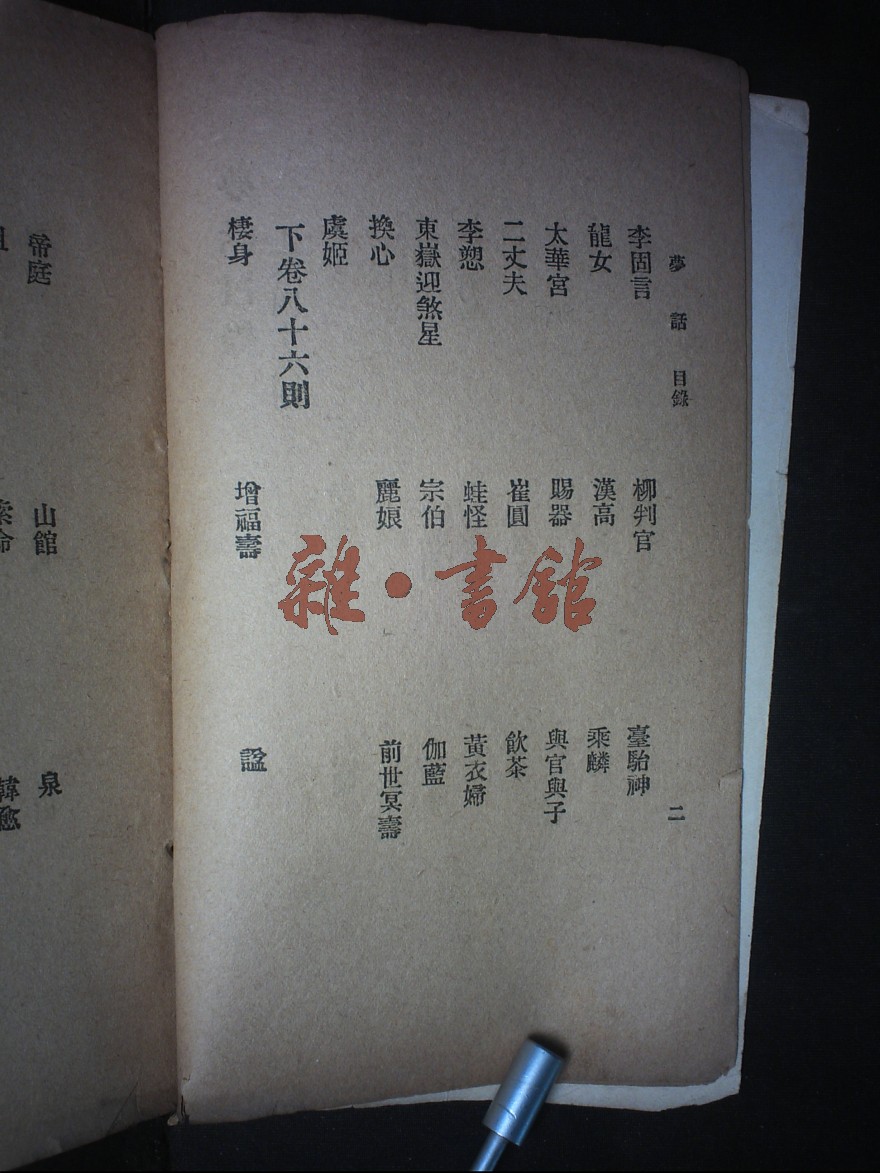 夢話 目錄 二
李固言 柳判官 臺駘神
龍女 漢高 乘麟
太華宮 賜器 與官與子
二丈夫 崔圓 飲茶
李愬 蛙怪 黃衣婦
東嶽迎煞星 宗伯 伽藍
換心 麗娘 前世冥壽
虞姬
下卷八十六則
棲身 增福壽 諡
帝庭 山館 泉
索命 韓愈
雜·書館